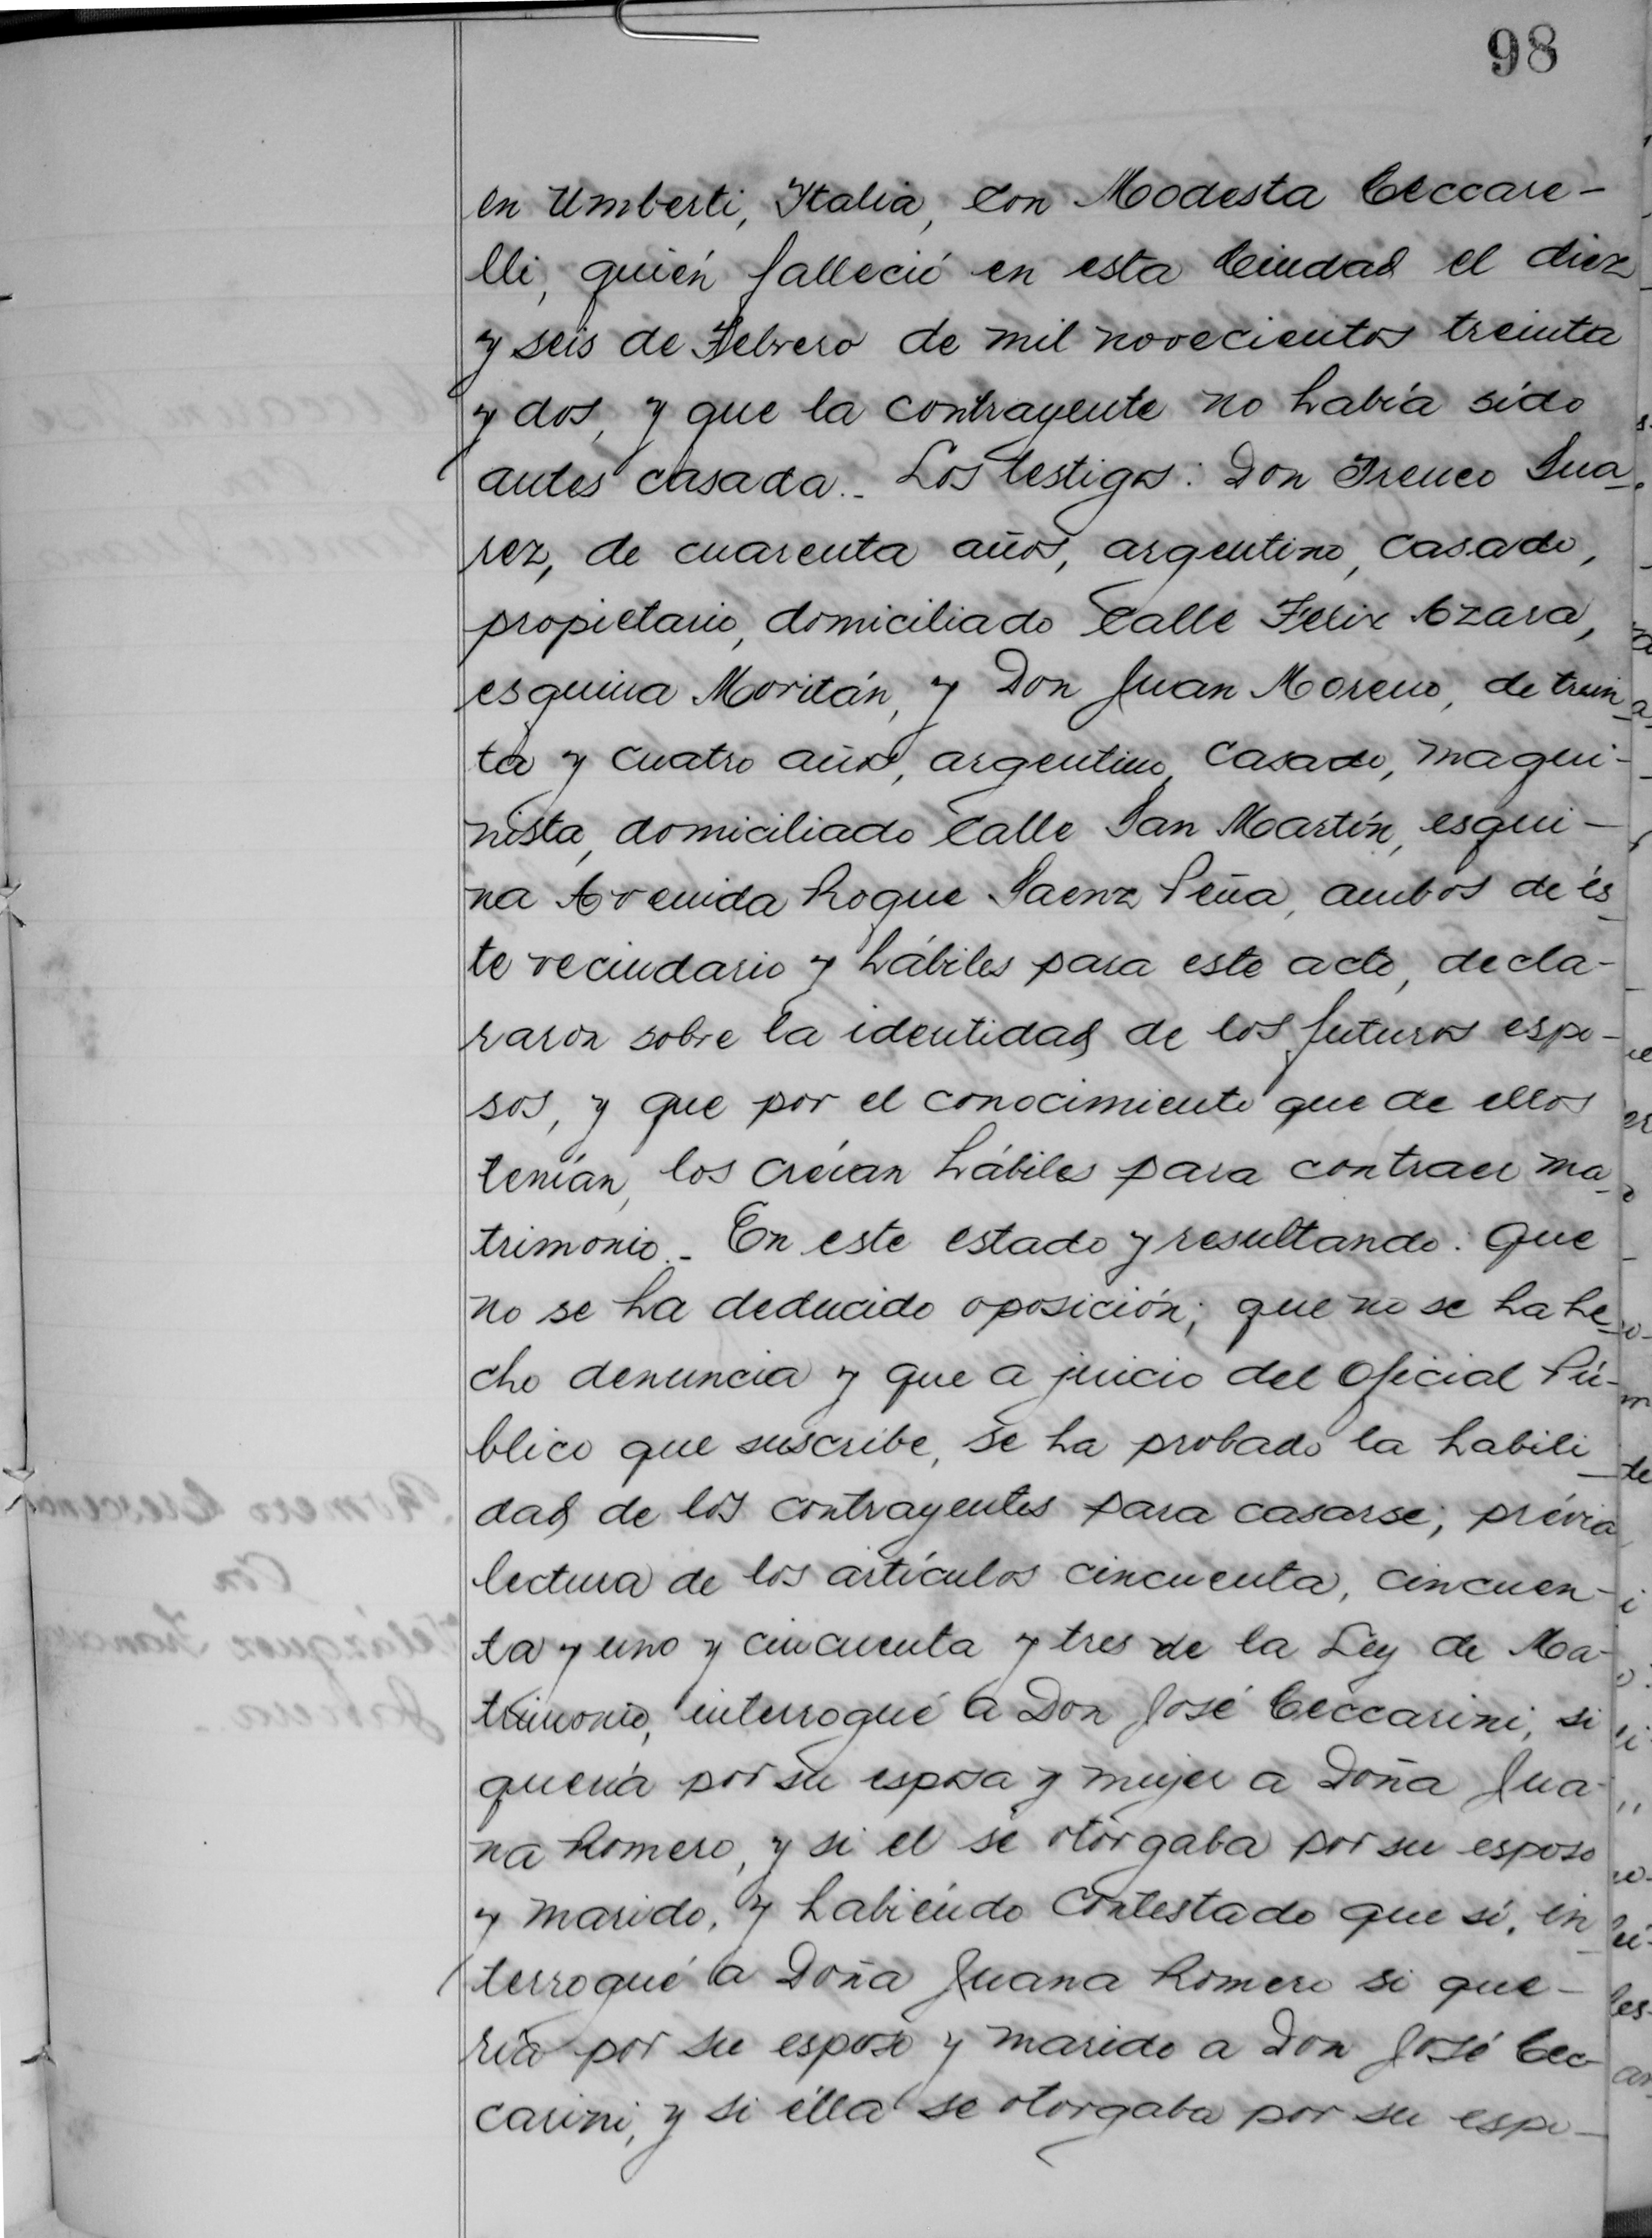 98
en Umberti, Italia, con Modesta Ceccare-
lli, quién falleció en esta Ciudad el diez
y seis de Febrero de mil novecientos treinta
y dos, y que la contrayente no había sido
antes casada.- Los testigos: Don Ireneo Sua-
rez, de cuarenta años, argentino, casado,
propietario, domiciliado Calle Felix Azara,
esquina Moritán, y Don Juan Moreno, de trein-
ta y cuatro años, argentino, casado, maqui-
nista, domiciliado Calle San Martín, esqui-
na Avenida Roque Saenz Peña, ambos de és-
te vecindario y hábiles para este acto, decla-
raron sobre la identidad de los futuros espo-
sos, y que por el conocimiento que de ellos
tenían, los creían hábiles para contraer ma-
trimonio.- En este estado y resultando: Que
no se ha deducido oposición; que no se ha he-
cho denuncia y que a juicio del Oficial Pú-
blico que suscribe, se ha probado la habili-
dad de los contrayentes para casarse; prévia
lectura de los artículos cincuenta, cincuen-
ta y uno y cincuenta y tres de la Ley de Ma-
trimonio, interrogué a Don José Ceccarini, si
quería por su esposa y mujer a Doña Jua-
na Romero, y si el se otorgaba por su esposo
y marido, y habiéndo contestado que sí, in-
terrogué a Doña Juana Romero si que-
ría por su esposo y marido a Don José Cec-
carini, y si élla se otorgaba por su espo-